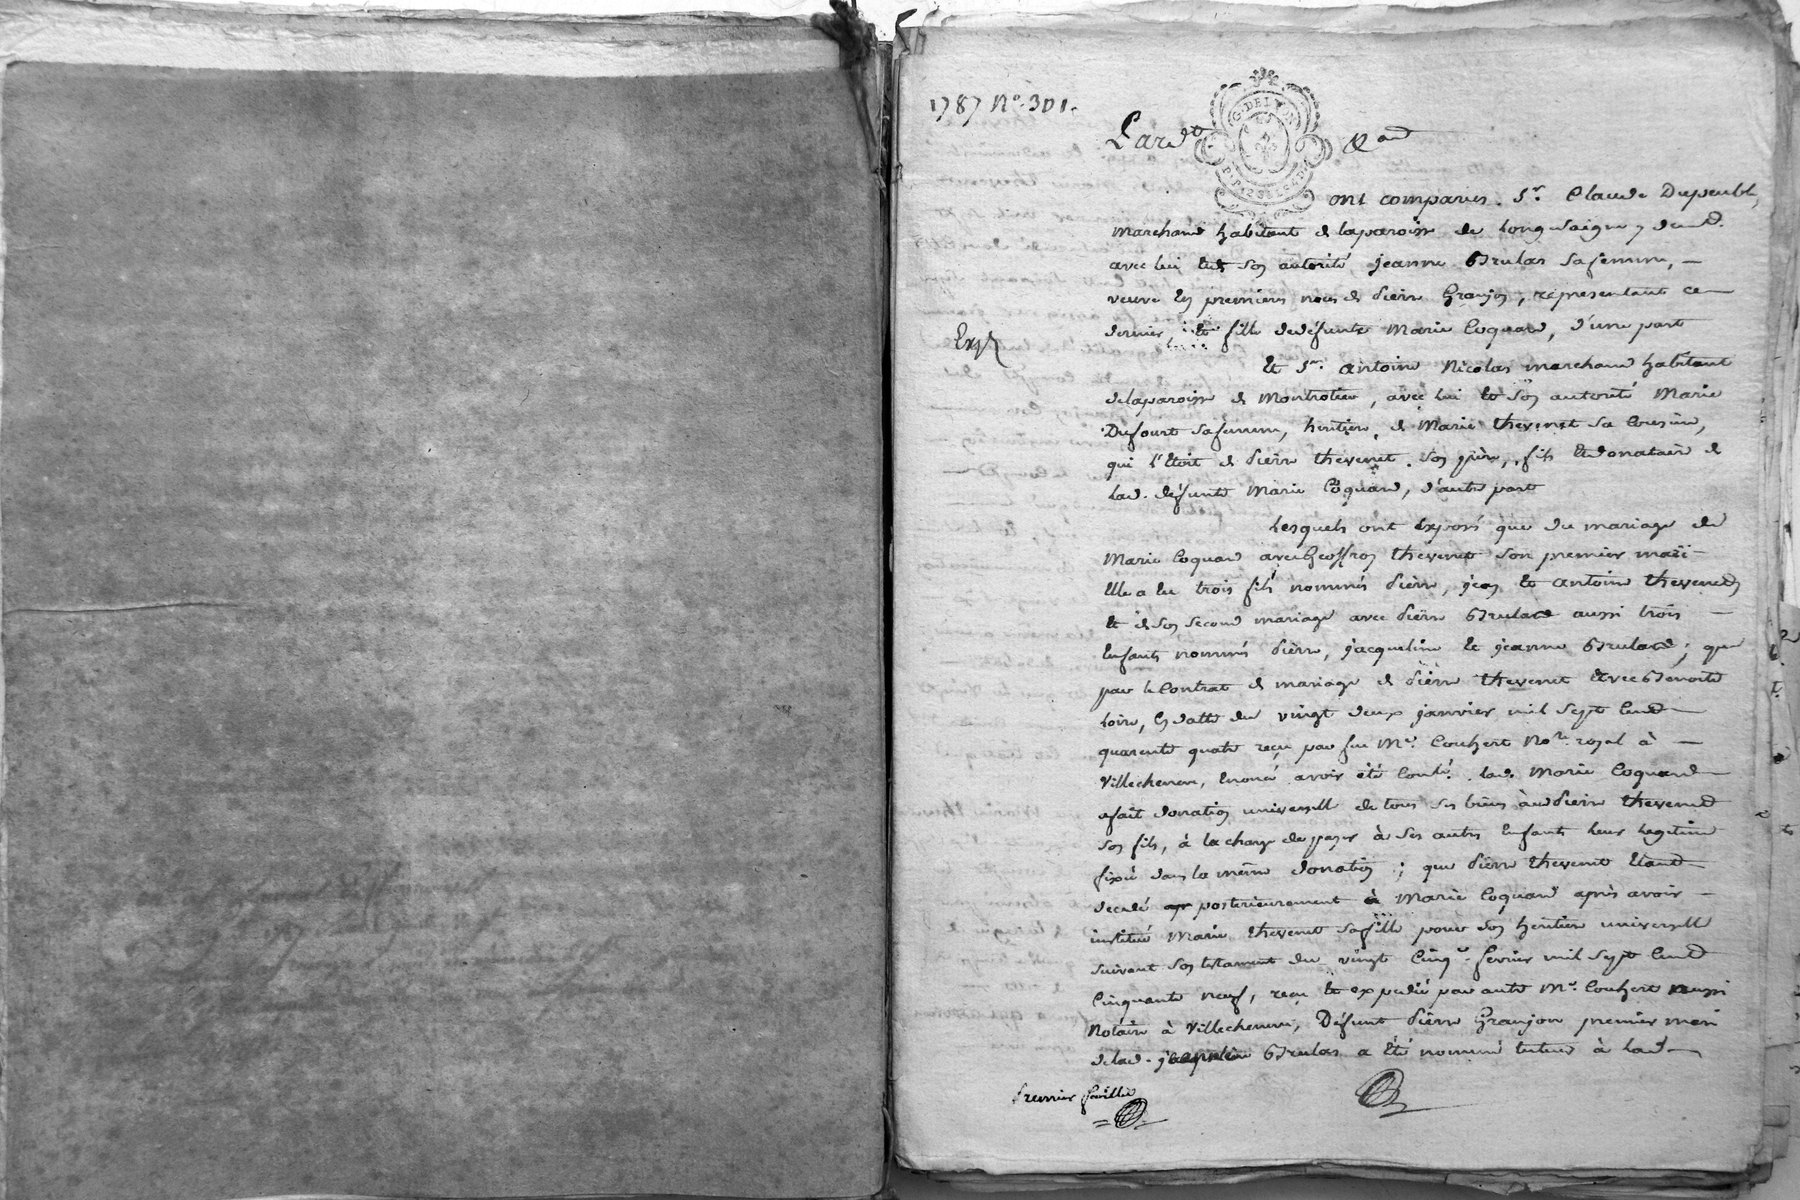 1787 No. 301.
Pard.t
G. DE LYON
ont comparus. Sr. Claude Dupeuble,
marchand habitant de la paroisse de Longessaigne,
avec lui et de son autorité jeanne Brulas sa femme,
veuve en premieres noces de pierre Granjon, représentant ce
dernier, et fille de défunte Marie Coquard, d'une part
Exp.
Et Sr. antoine Nicolas marchand habitant
de la paroisse de Montrotier, avec lui et de son autorité Marie
Dufourt sa femme, heritiere de Marie thevenet sa Cousine,
qui l'etoit de pierre thevenet son père, fils et donataire de
lad. défunte Marie Coquard, d'autre part
Lesquels ont exposé que du mariage de
Marie Coquard avec Geoffroy thevenet son premier mari
Elle a eu trois fils nommés pierre, jean et antoine thevenet
et de son second mariage avec pierre Brulard aussi trois
Enfants nommés pierre, jacqueline et jeanne Brulard; que
par le Contrat de mariage de pierre thevenet avec Benoite
Loire, en datte du vingt deux janvier mil sept Cent
quarente quatre reçu par feu Me. Couhert Nore. royal à
Villechenève, énoncé avoir été Contlé. lad. Marie Coquard
a fait donation universelle de tous ses biens aud. pierre thevenet
son fils, à la charge de payer à ses autres Enfants leur legitime
fixée dans la même donation; que pierre thevenet Etant
decedé posterieurement à Marie Coquard après avoir
institué Marie thevenet sa fille pour son heritiere universelle
suivant son testament du vingt Cinq fevrier mil sept Cent
Cinquante neuf, reçu et expedié par autre Me. Couhert aussi
Notaire à Villechenève, Défunt pierre Granjon premier mari
de lad. Brulas a été nommé tuteur à lad.
premier feuillet